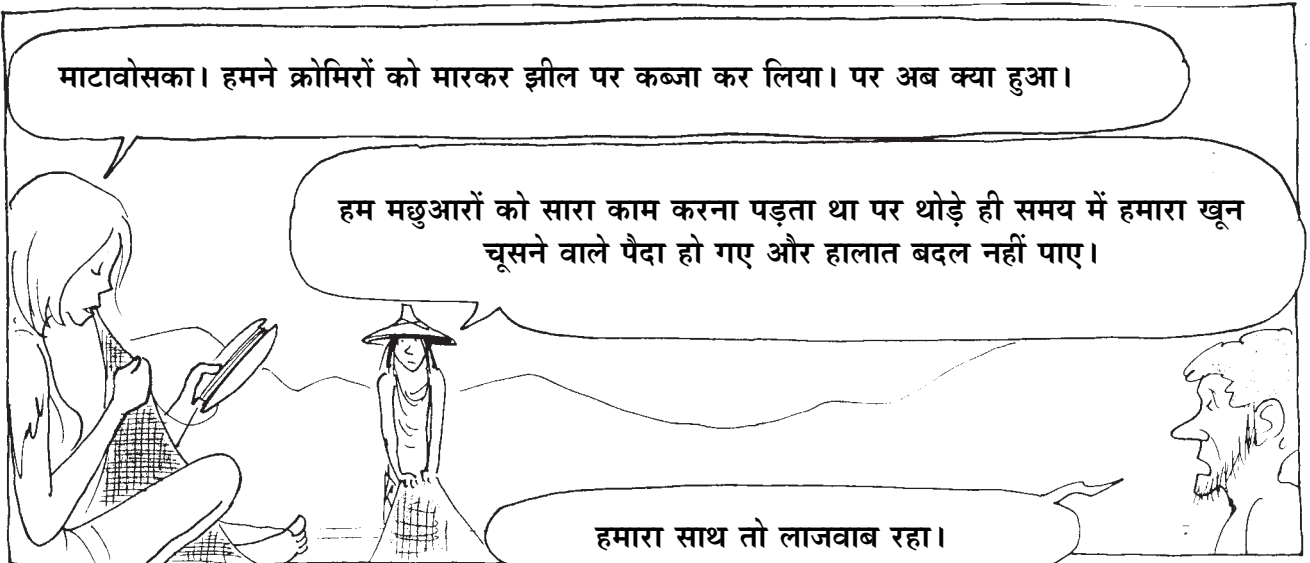 माटावोसका। हमने क्रोमिरों को मारकर झील पर कब्जा कर लिया। पर अब क्या हुआ।
हम मछुआरों को सारा काम करना पड़ता था पर थोड़े ही समय में हमारा खून
चूसने वाले पैदा हो गए और हालात बदल नहीं पाए।
हमारा साथ तो लाजवाब रहा।